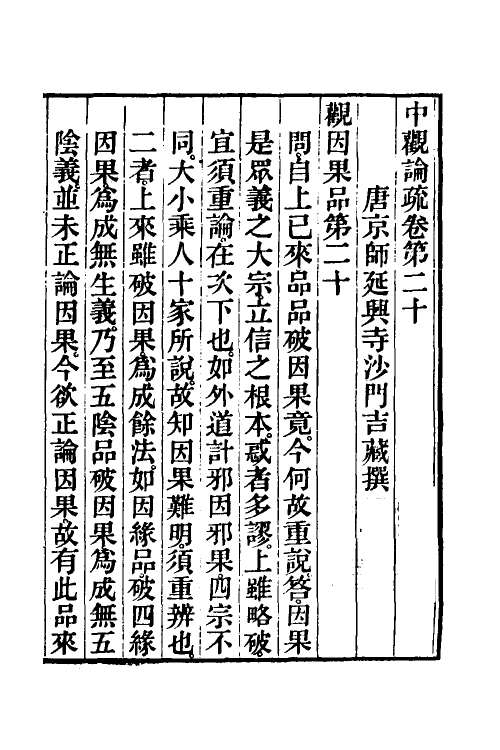 中觀論疏卷第二十
唐京師延興寺沙門吉藏撰
觀因果品第二十
問。自上已來品品破因果竟。今何故重說。答。因果
是眾義之大宗。立信之根本。惑者多謬。上雖略破。
宜須重論。在次下也。如外道計邪因邪果。四宗不
同。大小乘人十家所說。故知因果難明。須重辨也。
二者。上來雖破因果。為成餘法。如因緣品。破四緣
因果。為成無生義。乃至五陰品破因果為成無五
陰義。並未正論因果。今欲正論因果。故有此品來